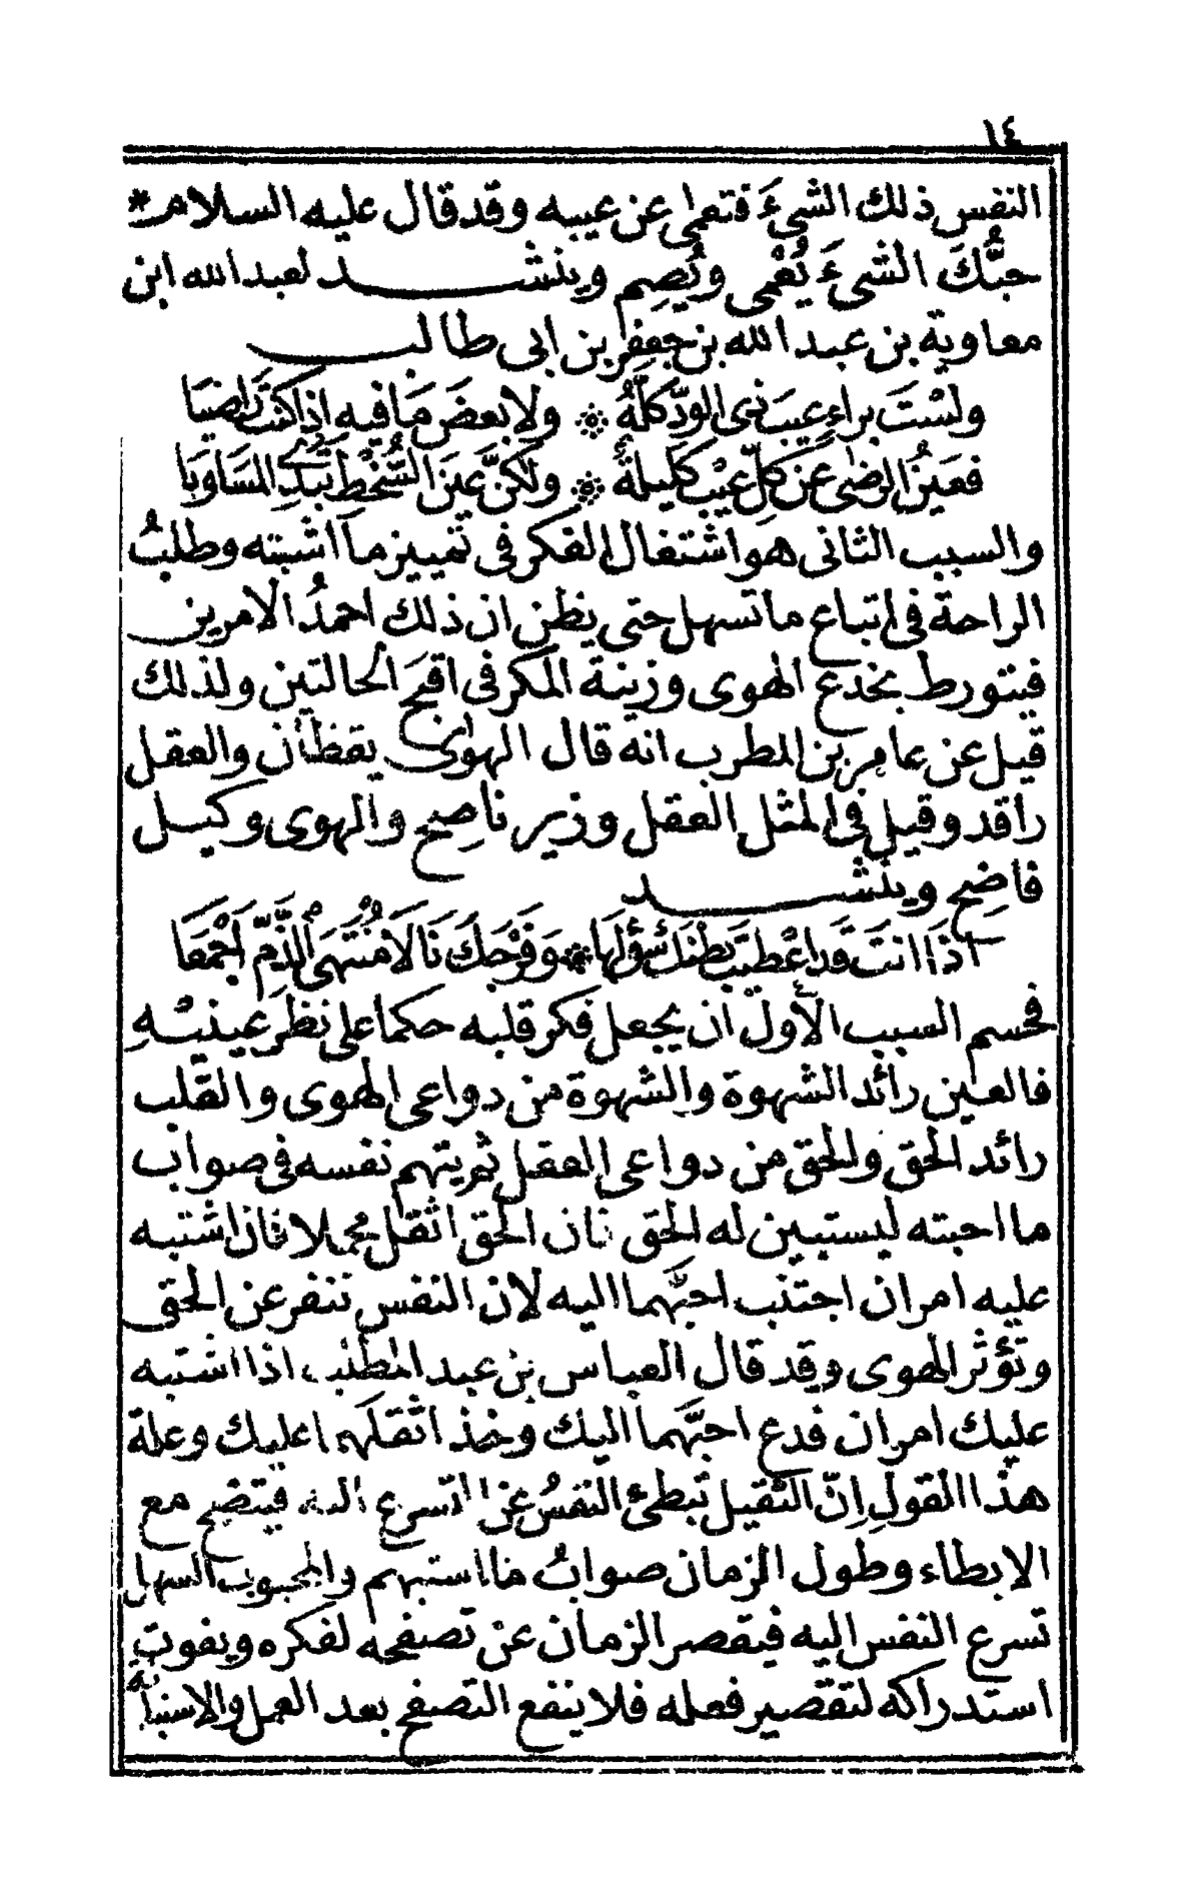 ١٤
النفس ذلك الشىءَ فتعمى عن عيبه وقد قال عليه السلام *
حبُّكَ الشىءَ يُعْمى ويُصِم وينشد لعبد الله ابن
معاوية بن عبد الله بن جعفر بن ابى طالب
ولسْتَ براءٍ عيبَ ذى الودّ كلَّهُ ۞ ولا بعضَ مَا فيه اذا كنتَ راضيَا
فعَينُ الرضى عَن كلِّ عيْبٍ كليلةٌ ۞ ولكنَّ عينَ السُّخْطِ تبْدِى المسَاوِيَا
والسبب الثانى هو اشتغال الفكر فى تمييز ما اشبته وطلبُ
الراحة فى اتباع ما تسهل حتى يظن ان ذلك احمدُ الامرين
فيتورط بخدع الهوى وزينة المكر فى اقبَح الحالتين ولذلك
قيل عن عامر بن المطرب انه قال الهوى يقظان والعقل
راقد وقيل فى المثل العقل وزير ناصِح والهوى وكيل
فاضِح وينشد
اذَا انتَ قَد اعْطيتَ بَطنَك سُؤْلَهَا ۞ وَفَرْجَكَ نَالَا مُنْتَهَى الذَّمّ اَجْمَعَا
فحسم السبب الاول ان يجعل فكر قلبه حكما على نظر عينيْهِ
فالعين رائد الشهوة والشهوة من دواعى الهوى والقلب
رائد الحق والحق من دواعى العقل ثم يتهم نفسه فى صواب
ما احبته ليستبين له الحق فان الحق اثقل محملا فان اشتبه
عليه امران اجتنب احبَّهما اليه لان النفس تنفر عن الحق
وتؤثر الهوى وقد قال العباس بن عبد المطلب اذا اشتبه
عليك امران فدع احبَّهما اليك وخذ اثقلَهما عليك وعلة
هذا القولِ اِنّ الثقيل تبطئ النفسُ عن التسرع اليه فيتضح مع
الابطاء وطول الزمان صوابُ ما استبهم والمحبوب السهل
تسرع النفس اليه فيقصر الزمان عن تصفحه لفكره ويفوت
استدراكه لتقصير فعله فلا ينفع التصفح بعد العمل والاستبانة